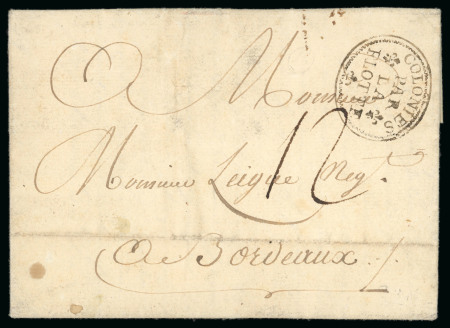 A Monsieur
COLONIES
PAR
LA
FLOTTE
Monsieur Leigue Negt.
12
A Bordeaux